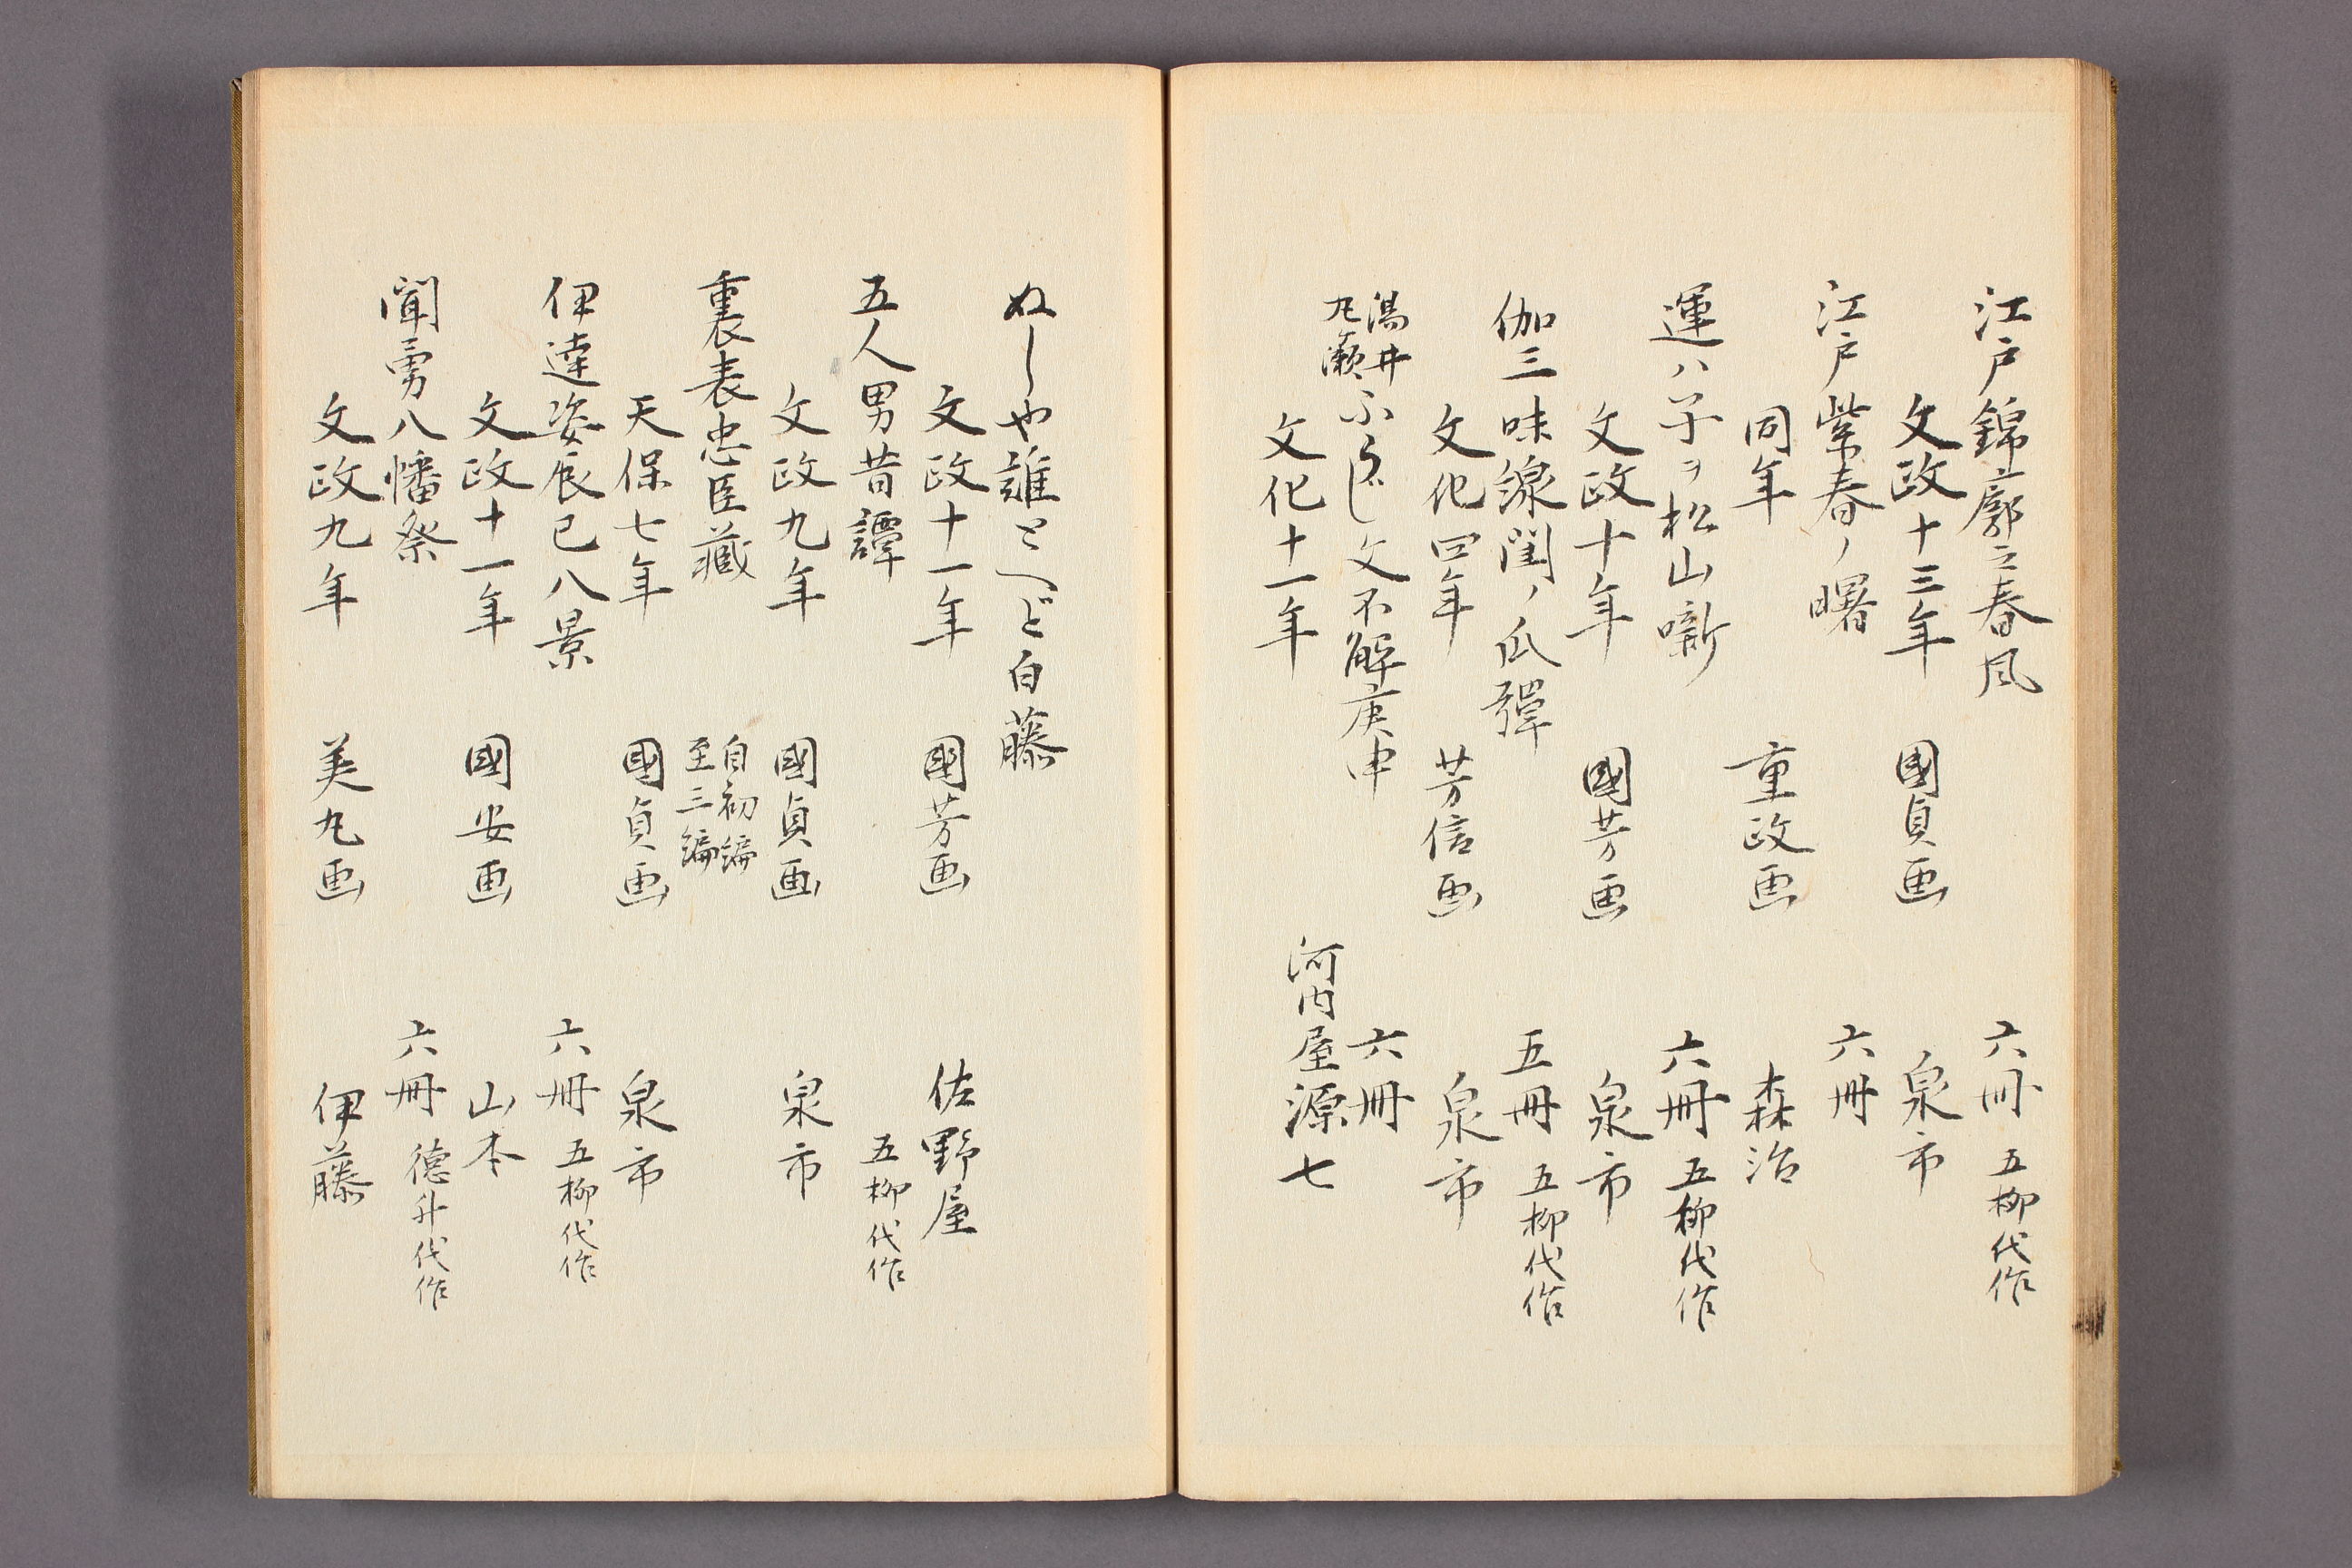 江戸錦廓之春風　六冊　五柳代作
文政十三年　國貞画　泉市
江戸紫春ノ曙　六冊
同年　重政画　森治
運ハ子ヲ松山噺　六冊　五柳代作
文政十年　國芳画　泉市
伽三味線閨ノ爪彈　五冊　五柳代作
文化四年　芳信画　泉市
湯井
九瀬
文不解庚申　六冊
文化十一年　河内屋源七
ぬしや誰とへど白藤
文政十一年　國芳画　佐野屋
五人男昔譚　五柳代作
文政九年　國貞画　泉市
裏表忠臣藏　自初編
至三編
天保七年　國貞画　泉市
伊達姿辰巳八景　六冊　五柳代作
文政十一年　國安画　山本
聞勇八幡祭　六冊　德升代作
文政九年　美丸画　伊藤